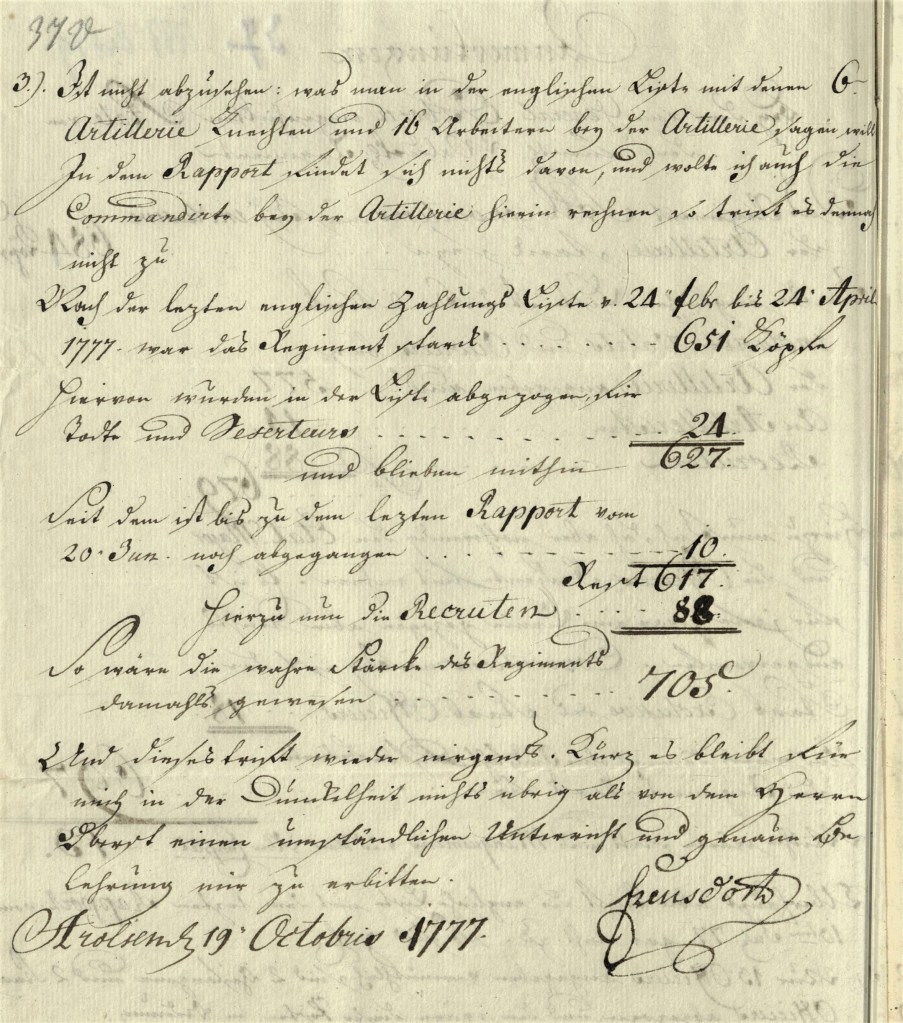 37v
3.). Ist nicht abzusehen: was man in der englischen Liste mit denen 6.
Artillerie Knechten und 16 Arbeitern bey der Artillerie sagen will
In dem Rapport findet sich nichts davon, und wolte ich auch die
Commandirte bey der Artillerie hierin rechnen so trift es dennoch
nicht zu
Nach der lezten englischen Zahlungs Liste v. 24t febr bis 24t April
1777. war das Regiment starck . . . . . . . . 651 Köpfe
Hiervon wurden in der Liste abgezogen, für
Todte und Deserteurs . . . . . . . . . . 24.
und blieben mithin 627.
Seit dem ist bis zu dem lezten Rapport vom
20t Jun. noch abgegangen . . . . . . . . . 10.
Rest 617.
Hierzu nun die Recruten . . . . 88
So wäre die wahre Stärcke des Regiments
damahls gewesen . . . . . . . . . . . 705.
Und dieses trift wieder nirgends. Kurz es bleibt für
mich in der Dunckelheit nichts übrig als von dem Herrn
Obrist einen umständlichen Unterricht und genaue Be
lehrung mir zu erbitten.
Frensdorff
Arolsen d 19t Octobris 1777.